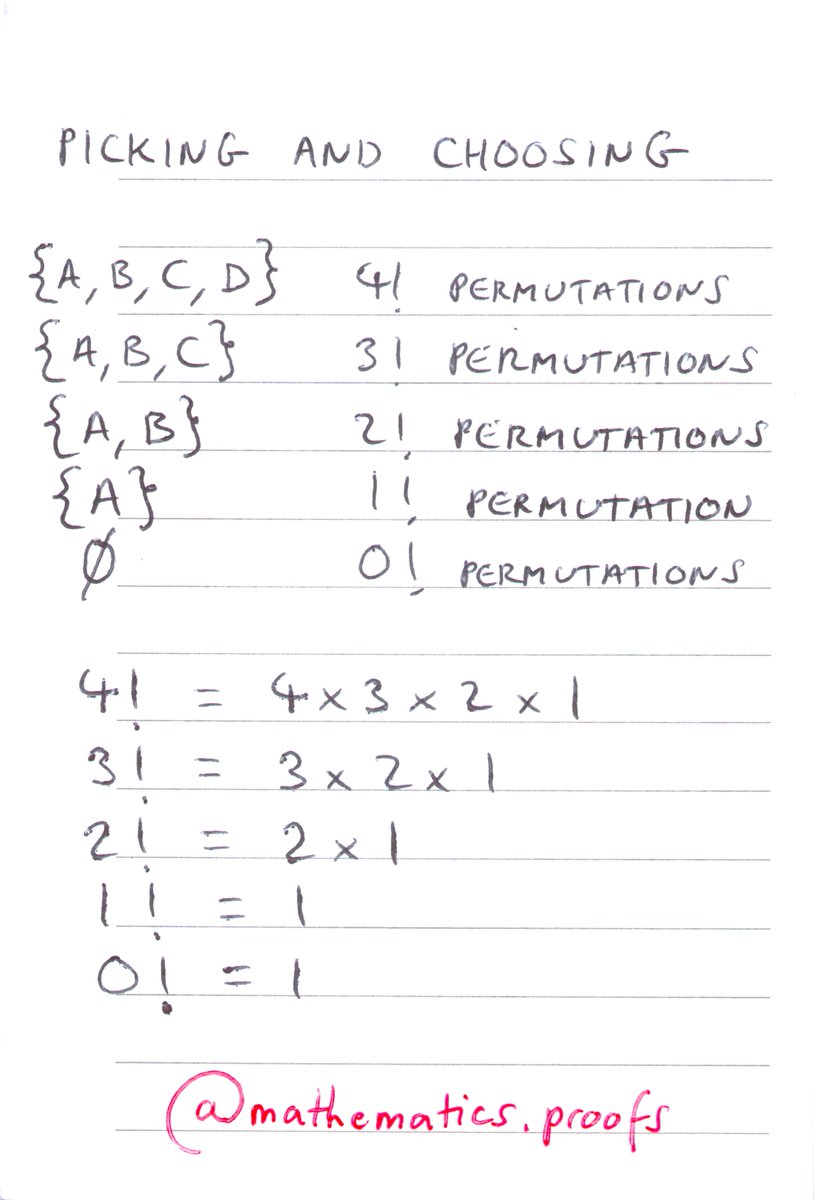 PICKING AND CHOOSING
{A, B, C, D} 4! PERMUTATIONS
{A, B, C} 3! PERMUTATIONS
{A, B} 2! PERMUTATIONS
{A} 1! PERMUTATION
∅ 0! PERMUTATIONS
4! = 4 × 3 × 2 × 1
3! = 3 × 2 × 1
2! = 2 × 1
1! = 1
0! = 1
@mathematics.proofs